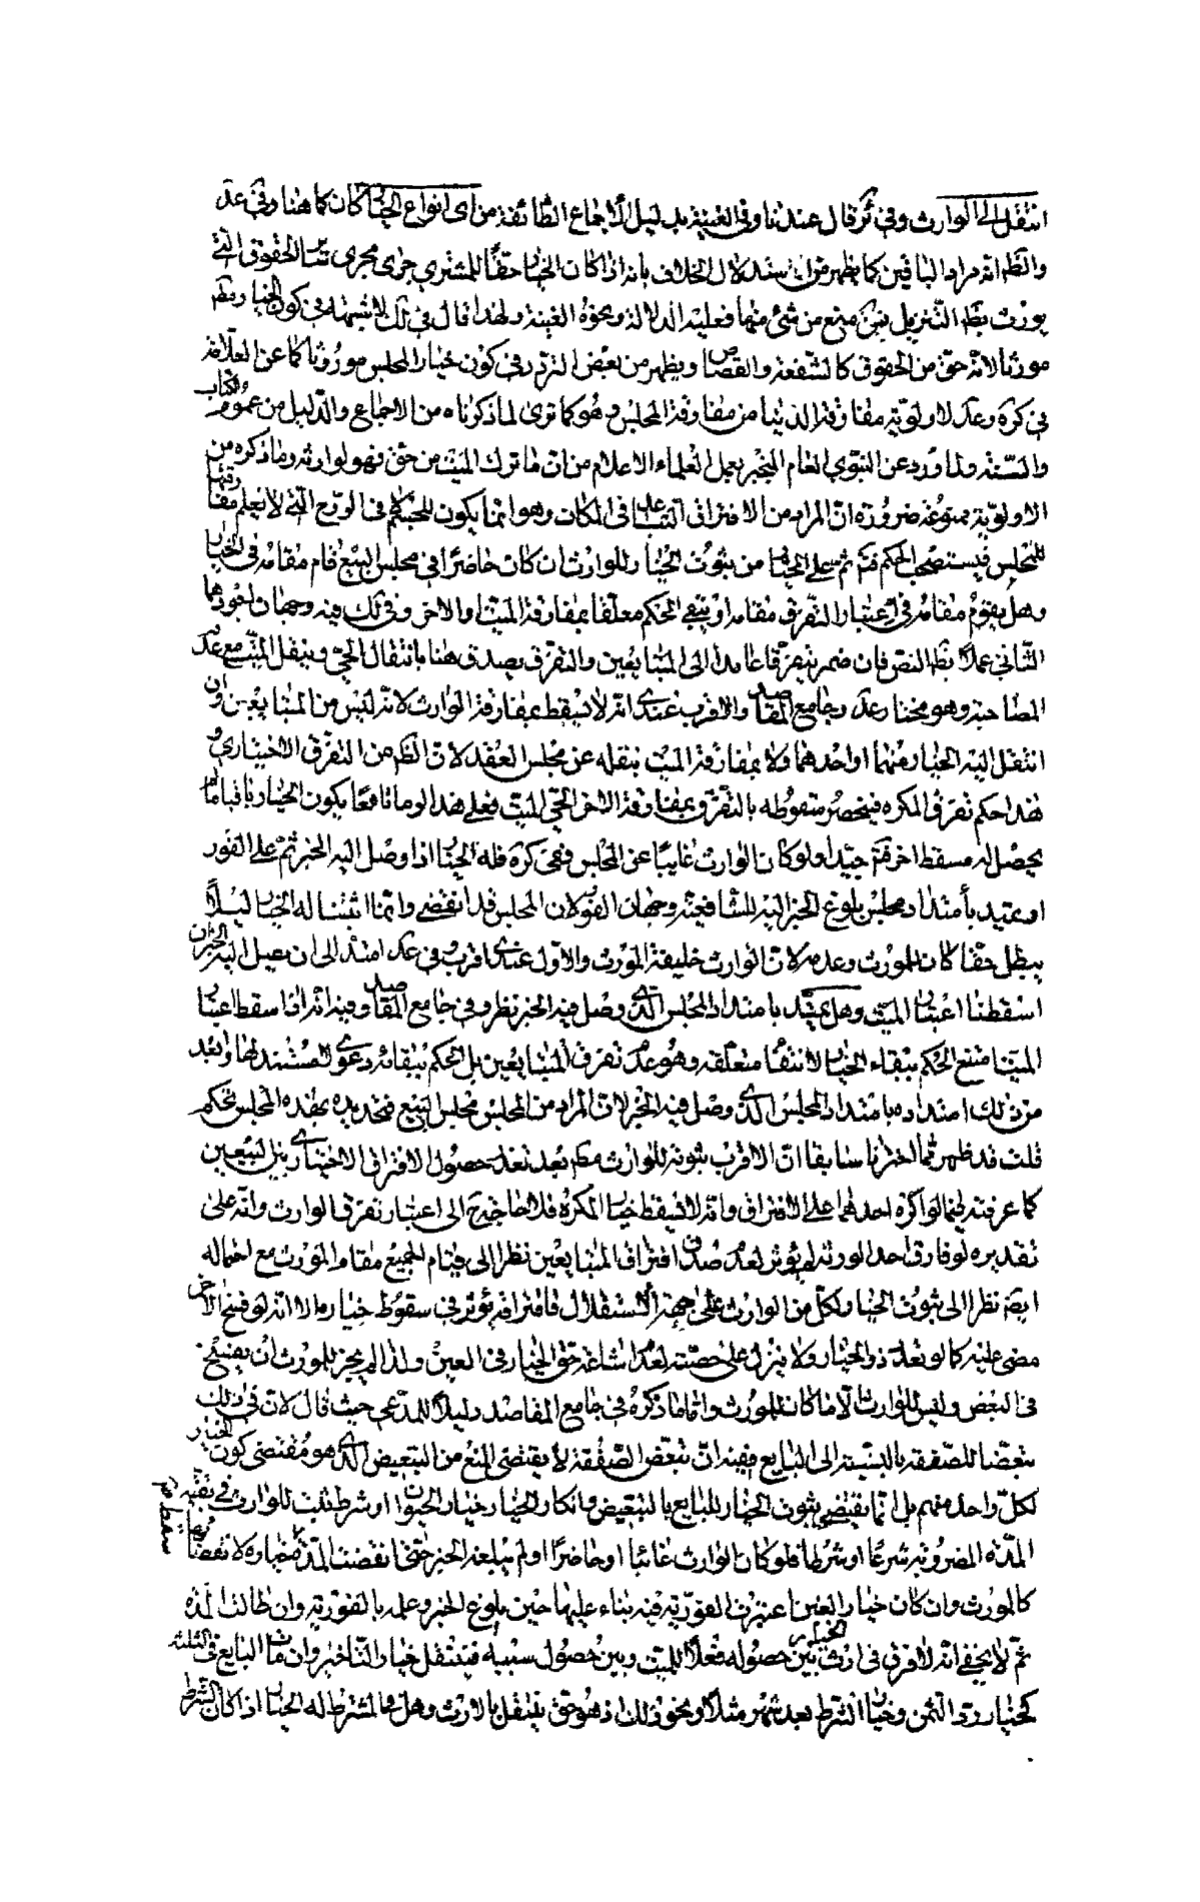 انتقل الى الوارث وفي كره قال عندنا وفي الغنية بدليل الاجماع الطائفة من اى انواع الخيار كان كما هنا وفي عد
والظم انه مراد الباقين كما يظهر من استدلال الخلاف بانه اذا كان الخيار حقا للمشتري جرى مجرى الحقوق التي
يورث بظم التنزيل فمن منع من شئ منها فعليه الدلالة ونحوه الغنية ولهذا قال في لك لا شبهة في كون الخيار مطم
موروثا لانه حق من الحقوق كالشفعة والقصاص ويظهر من بعض التردد في كون خيار المجلس موروثا كما عن العلامة
في كره وعد لاولوية مفارقة الدنيا من مفارقة المجلس وهو كما ترى لما ذكرناه من الاجماع والدليل من عموم الكتاب
والسنة وما ورد عن النبوي العام المنجبر بعمل العلماء الاعلام من ان ما ترك الميت من حق فهو لوارثه وما ذكره من
الاولوية ممنوعة ضرورة ان المراد من الافتراق التباعد في المكان وهو انما يكون للجسم في الروح التي لا يعلم مفارقتها
للمجلس فيستصحب الحكم فثم على المختار من ثبوت الخيار للوارث ان كان حاضرا في مجلس البيع قام مقامه في الخيار
وهل يقوم مقامه في اعتبار التفرق مقامه او يبقى الحكم معلقا بمفارقة الميت او الاخر وفي لك فيه وجهان اجودهما
الثاني عملا بظم النص فان ضمير يتفرقا عائد الى المتبايعين والتفرق يصدق هنا بانتقال الحي وبنقل الميت مع عد
المصاحبة وهو مختار عد وجامع المقاصد والاقرب عندى انه لا يسقط بمفارقة الوارث لانه ليس من المتبايعين وان
انتقل اليه الخيار منهما او احدهما ولا بمفارقة الميت بنقله عن مجلس العقد لان الظم من التفرق الاختياري و
هذا حكم تفرق المكره فينحصر سقوطه بالتفرق بمفارقة الاخر الحي للميت فعلى هذا لو ماتا معا يكون الخيار باقيا ما لم
يحصل له مسقط اخر فتم جيدا ولو كان الوارث غايبا عن المجلس ففي كره فله الخيار اذا وصل اليه الخبر ثم على الفور
او يمتد بامتداد مجلس بلوغ الخبر اليه للشافعية وجهان الفور لان المجلس قد انقضى وانما اثبتنا له الخيار ليلا
يبطل حقا كان للمورث وعدمه لان الوارث خليفة المورث والاول عندى اقرب وفي عد امتد الى ان يصل اليه الخبر ان
اسقطنا اعتبار الميت وهل يمتد بامتداد المجلس الذى وصل فيه الخبر نظر وفي جامع المقاصد وفيه انه اذا سقط اعتبار
الميت امتنع الحكم ببقاء الخيار لانتفاء متعلقه وهو عد تفرق المتبايعين بل الحكم ببقائه دعوى لا مستند لها وابعد
من ذلك امتداده بامتداد المجلس الذى وصل فيه الخبر لان المراد من المجلس مجلس البيع فتحديده بهذه المجلس تحكم
قلت قد ظهر مما اخترنا سابقا ان الاقرب ثبوته للوارث مطم بعد تعذر حصول الافتراق الاختياري بين البيعين
كما عرفته فيما لو اكره احدهما على الافتراق وانه لا يسقط خيار المكره فلا حاجة الى اعتبار تفرق الوارث وانه على
تقديره لو فارق احد الورثة لم يؤثر لعد صدق افتراق المتبايعين نظرا الى قيام الجميع مقام المورث مع احتماله
ايضا نظرا الى ثبوت الخيار لكل من الوارث على جهة الاستقلال فافتراقه يؤثر في سقوط خياره الا انه لو فسخ الاخر
مضى عليه كما لو تعدد ذو الخيار ولا ينزل على حصته لعد اشاعة حق الخيار في العين ولذا لم يجز للمورث ان يفسخ
في البعض وليس للوارث الا ما كان للمورث واما ما ذكره في جامع المقاصد دليلا للمدعى حيث قال لان في ذلك
تبعضا للصفقة بالنسبة الى البايع ففيه ان تبعض الصفقة لا يقتضى المنع من التبعيض الذى هو مقتضى كون الخيار
لكل واحد منهم بل انما يقتضى ثبوت الخيار للبايع بالتبعيض ولو كان الخيار خيار الحيوان او شرط ثبت للوارث في بقية
المدة المضروبة شرعا او شرطا فلو كان الوارث غائبا او حاضرا او لم يبلغه الخبر حتى انقضت المدة سقط خياره لانقضائها
كالمورث وان كان خيار العين اعتبرت الفورية فيه بناء عليها حين بلوغ الخبر وعلمه بالفورية وان طالت المدة
ثم لا يخفى انه لا فرق في ارث الخيار بين حصوله فعلا للميت وبين حصول سببه فينتقل خيار التاخير وان مات البايع في الثلثة
كخيار رد الثمن وخيار الشرط بعد شهر مثلا ونحو ذلك اذ هو حق ينتقل بالارث وهل للمشترط له الخيار اذا كان الشرط